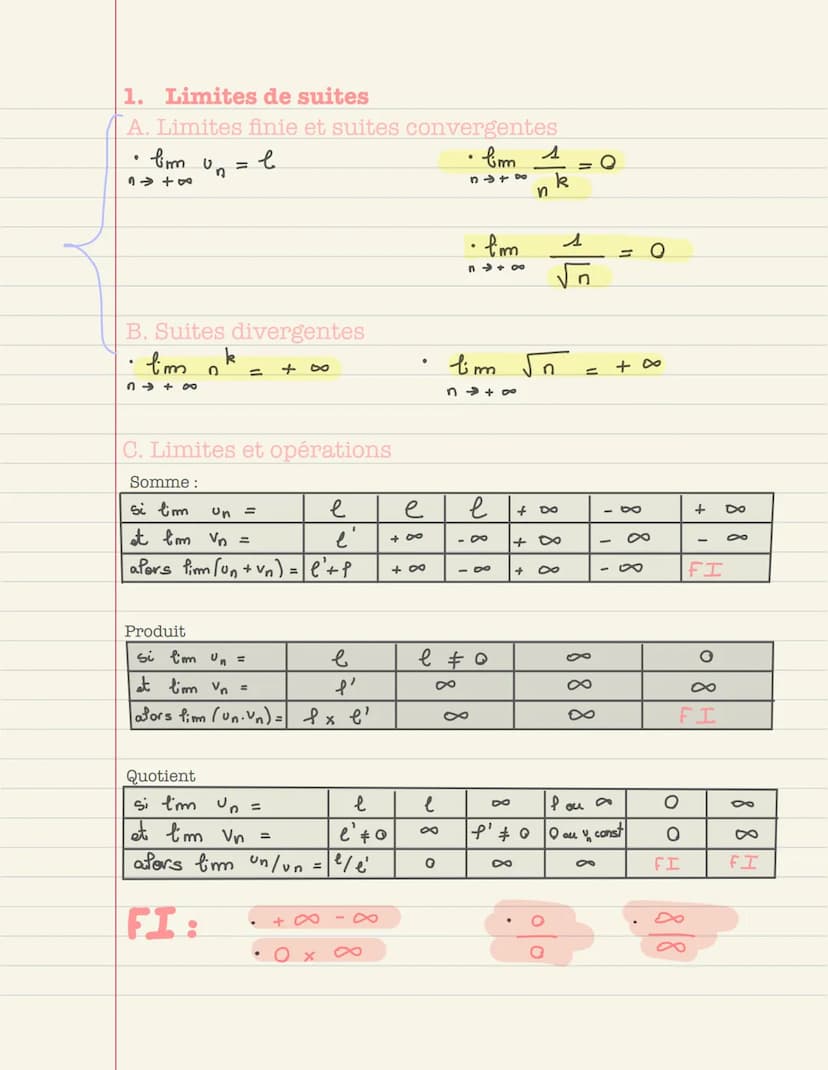 1. Limites de suites
A. Limites finie et suites convergentes
· lim uₙ = l
n→ +∞
· lim 1/nᵏ = 0
n→ +∞
· lim 1/√n = 0
n→ +∞
B. Suites divergentes
· lim nᵏ = +∞
n→ +∞
· lim √n = +∞
n→ +∞
C. Limites et opérations
Somme :
si lim uₙ = | l | l | l | +∞ | -∞ | +∞
et lim vₙ = | l' | +∞ | -∞ | +∞ | -∞ | -∞
alors lim(uₙ+vₙ) = | l'+l | +∞ | -∞ | +∞ | -∞ | FI
Produit
si lim uₙ = | l | l ≠ 0 | ∞ | 0
et lim vₙ = | l' | ∞ | ∞ | ∞
alors lim(uₙ.vₙ) = | l × l' | ∞ | ∞ | FI
Quotient
si lim uₙ = | l | l | ∞ | l ou ∞ | 0 | ∞
et lim vₙ = | l' ≠ 0 | ∞ | l' ≠ 0 | 0 ou vₙ const | 0 | ∞
alors lim uₙ/vₙ = | l/l' | 0 | ∞ | ∞ | FI | FI
FI :
· +∞ -∞
· 0 × ∞
· 0/0
· ∞/∞